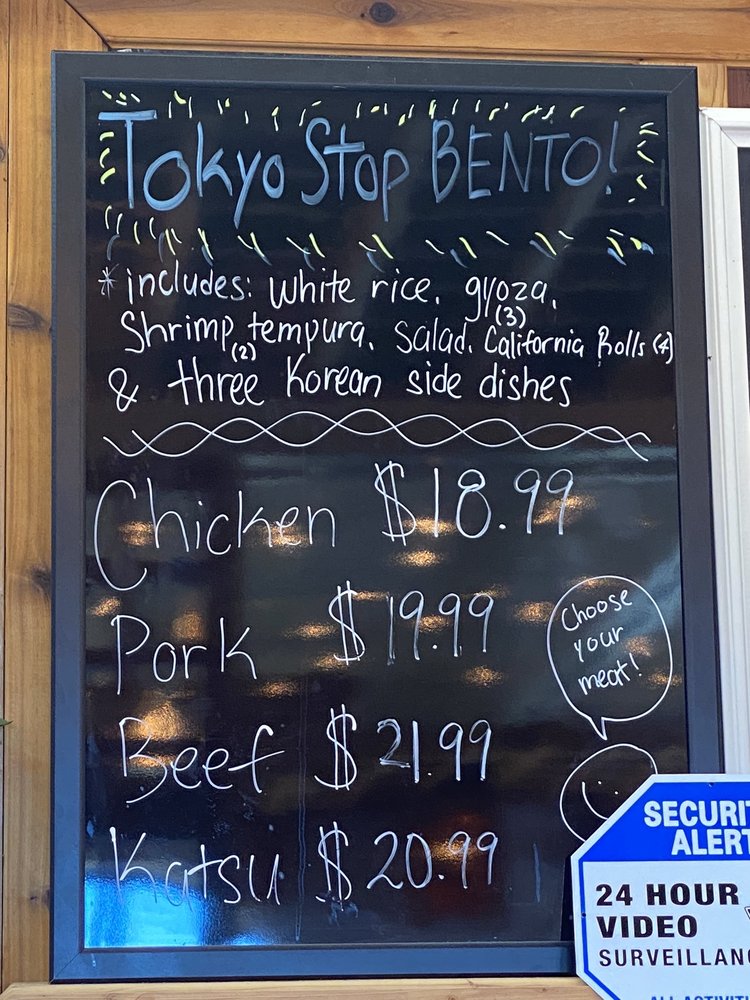 Tokyo Stop BENTO!
* includes: white rice, gyoza, (3)
Shrimp tempura, (2) salad, California Rolls (4)
& three Korean side dishes
Chicken $18.99
Pork $19.99
Choose
your
meat!
Beef $21.99
Katsu $20.99
SECURI
ALERT
24 HOUR
VIDEO
SURVEILLAN